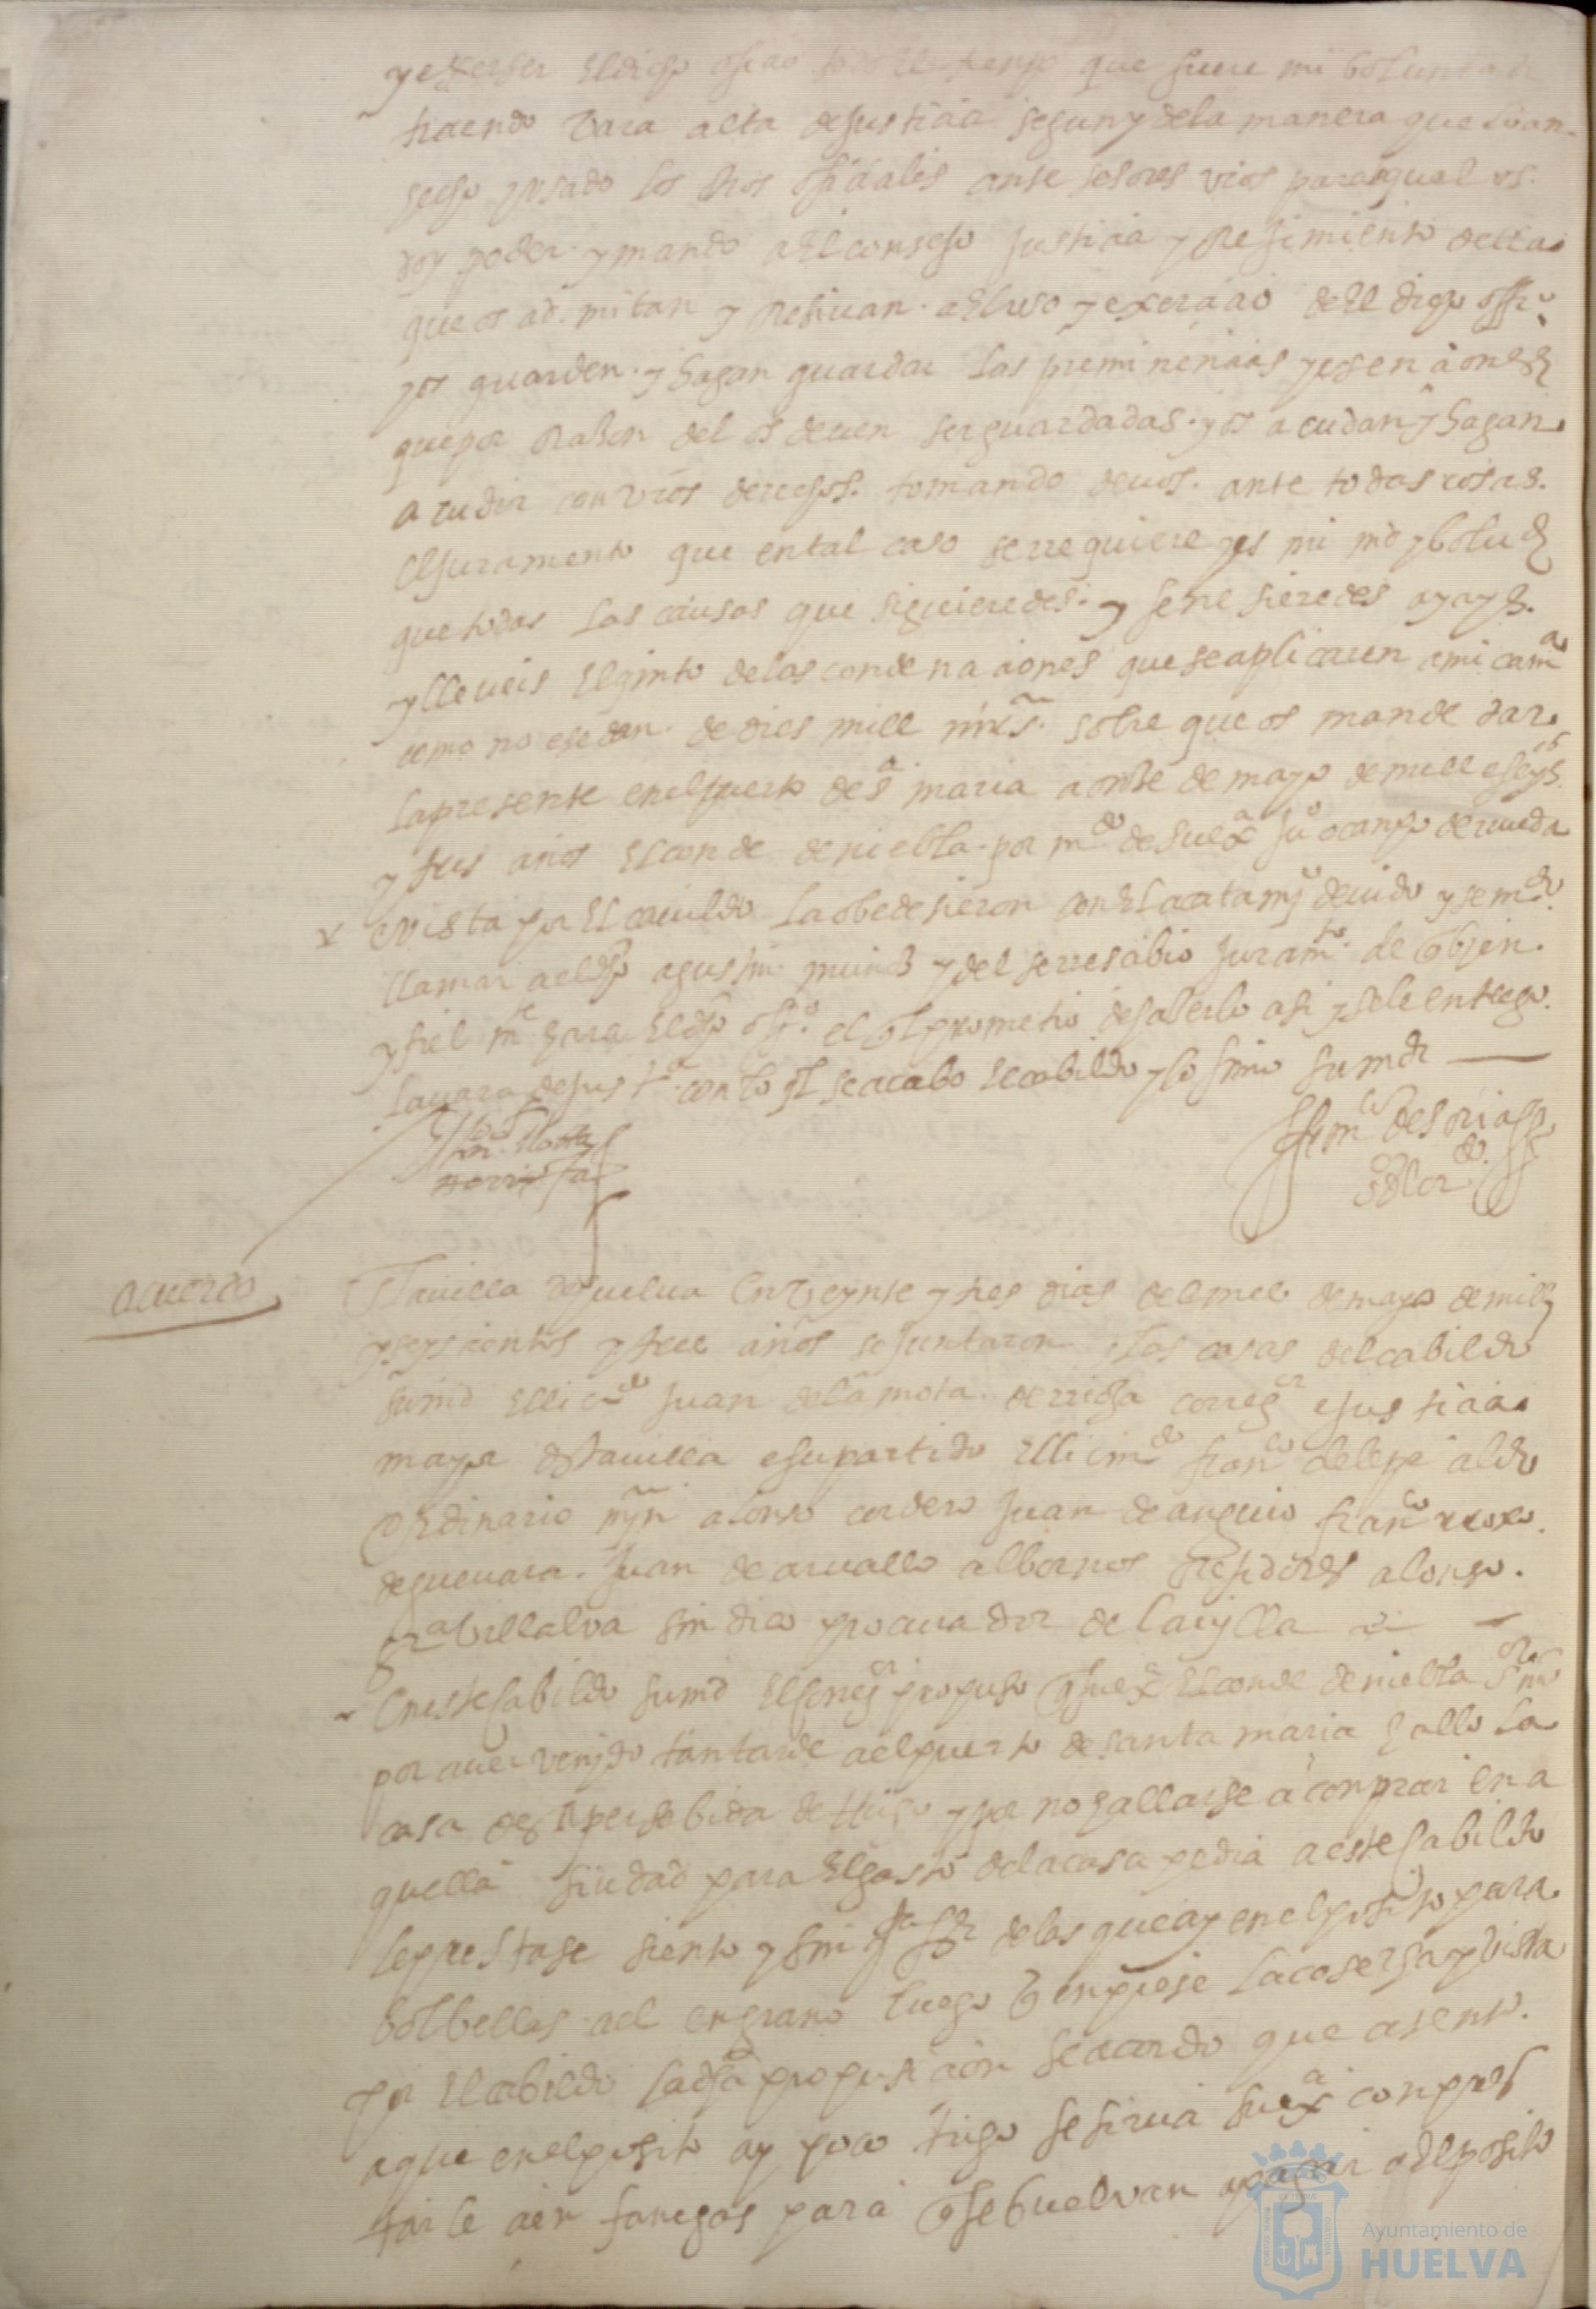 y exerser el dicho ofiçio todo el tienpo que fuere mi boluntad
traendo vara alta de justiçia segun y de la manera que lo an
hecho y usado los otros ofiçiales antesesores vros para lo qual os
doy poder y mando a el consejo justiçia y Regimiento della
que os admitan y Resiuan a el uso y exerçiçio de el dicho offiº
y os guarden y hagan guardar las preminençias y esençiones
que por Razon del os deuen ser guardadas y os acudan y hagan
acudir con vros derechos tomando de vos ante todas cosas
el juramento que en tal caso se rrequiere y es mi md y bolud
que todas las causas que siguieredes y feneSieredes ayays
y lleueis el quinto de las condenaçiones que se aplicaren a mi camª
como no esedan de dies mill mrs sobre que os mande dar
la presente en el puerto de sª maria a onse de mayo de mill e seysº
y tres años el conde de niebla por mdº de su exª juº ocanpo de rrueda
e vista por el cauildo la obedesieron con el acatamyº deuido y se mdº
llamar a el dho agustin muños y del se rresabio juramtº de q bien
y fiel mte hara el dho ofiº el ql prometio de haserlo asi y se le entrego
la vara de justª con lo ql se acabo el cabildo y lo firmo su md
El lcdº
m de la mota
derriga
franco de soria
acuerdo
En la uilla de huelua en veynte y tres dias del mes de mayo de mill
y seyscientos y trece años se juntaron en las casas del cabildo
su md el licdº juan de la mota derriga corregor e justiçia
mayor desta uilla e su partido el licendº franco de lepe aldo
Ordinario myn alonso cordero juan de anguio franco
de gueuara juan de caruallo albornos Regidores alonso
gra villalva sindico procurador de la vylla
En este Cabildo su md el corregor propuso q su exª el conde de niebla sr nro
por auer venydo tan tarde a el puerto de santa maria hallo la
casa desaperSebida de trigo y por no hallarse a conprar en a
quella siudad para el gasto de la casa pedia a este Cabildo
le prestase siento y fanegas de las que ay en el posito para
bolbellas a el en grano luego q enpiese la cosecha y vista
por el cabildo la dha propusiçion se acordo que atento
a que en el posito ay poco trigo se sirua su exª con pres
tarle çien fanegas para q se buelvan a pagar a el posito
Ayuntamiento de
HUELVA